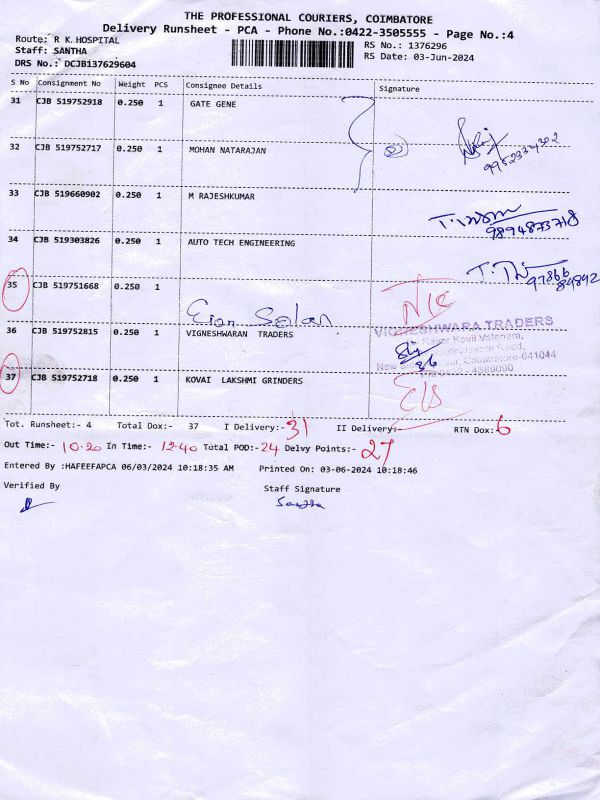 THE PROFESSIONAL COURIERS, COIMBATORE
Delivery Runsheet - PCA - Phone No.:0422-3505555 - Page No.:4
Route: R K.HOSPITAL
RS No.: 1376296
Staff: SANTHA
RS Date: 03-Jun-2024
DRS No.: DCJB137629604
S No Consignment No Weight PCS Consignee Details Signature
31 CJB 519752918 0.250 1 GATE GENE
32 CJB 519752717 0.250 1 MOHAN NATARAJAN
9952334302
33 CJB 519660902 0.250 1 M RAJESHKUMAR
9894873718
34 CJB 519303826 0.250 1 AUTO TECH ENGINEERING
97866
84892
35 CJB 519751668 0.250 1
36 CJB 519752815 0.250 1 VIGNESHWARAN TRADERS
VIGNESHWARA TRADERS
Coimbatore-641044
4369090
37 CJB 519752718 0.250 1 KOVAI LAKSHMI GRINDERS
Tot. Runsheet:- 4 Total Dox:- 37 I Delivery:- 31 II Delivery:- RTN Dox: 6
Out Time:- 10.20 In Time:- 12-40 Total POD:- 24 Delvy Points:- 27
Entered By :HAFEEFAPCA 06/03/2024 10:18:35 AM Printed On: 03-06-2024 10:18:46
Verified By Staff Signature
Santha